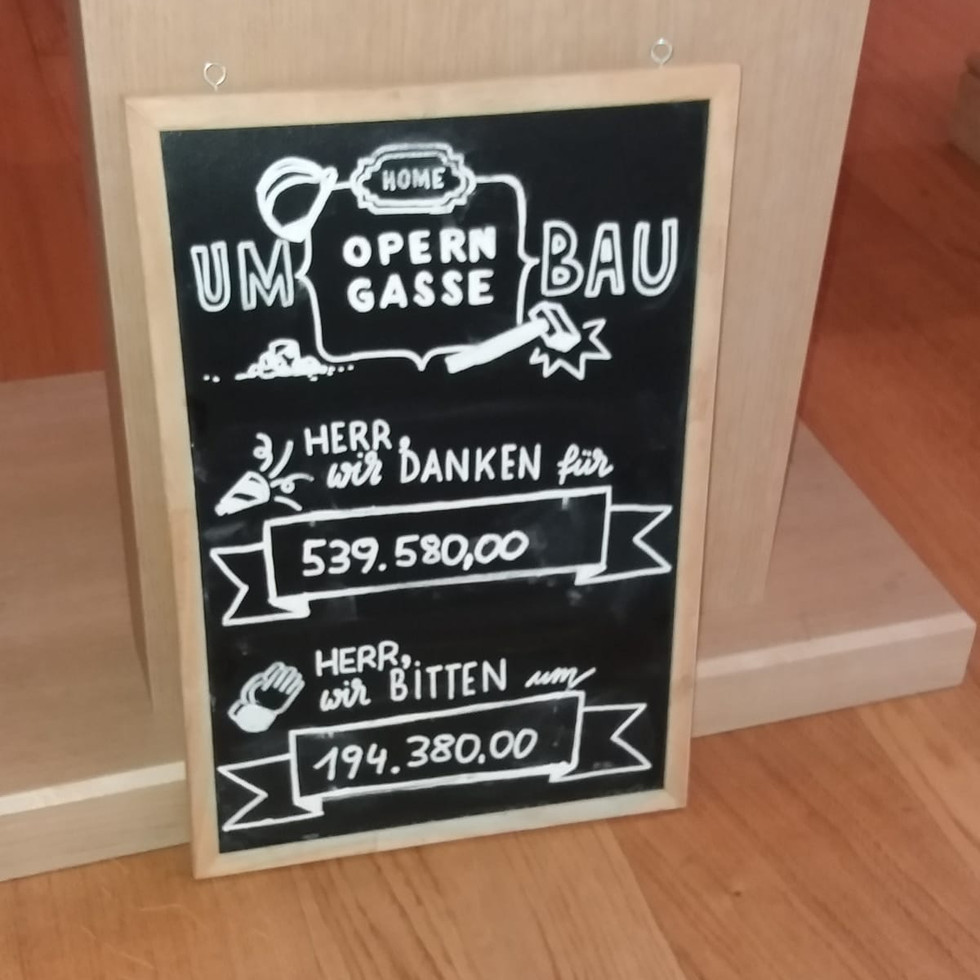 HOME
UM OPERN BAU
GASSE
HERR,
wir DANKEN für
539.580,00
HERR,
wir BITTEN um
194.380.00